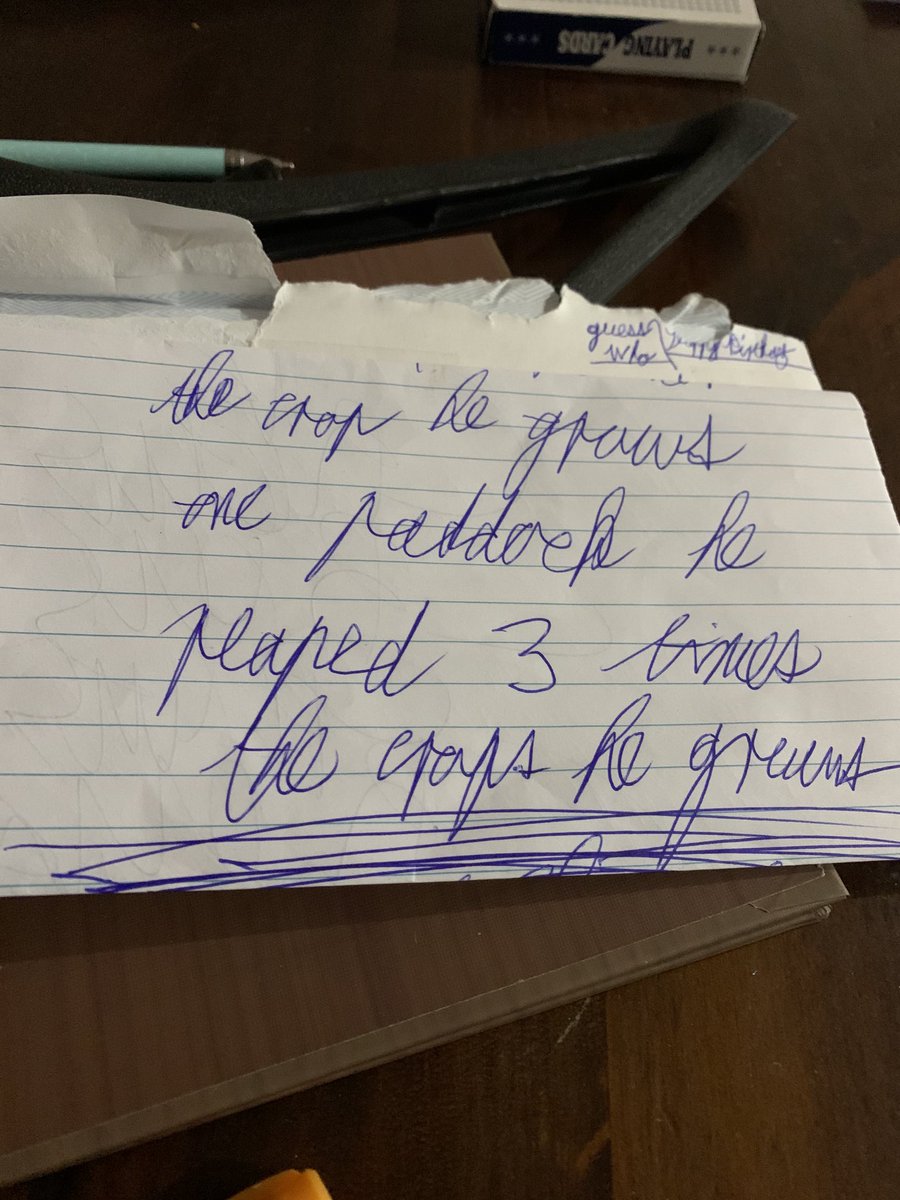 PLAYING CARDS
guess
who
the crop he grows
one paddock he
reaped 3 times
the crops he grows